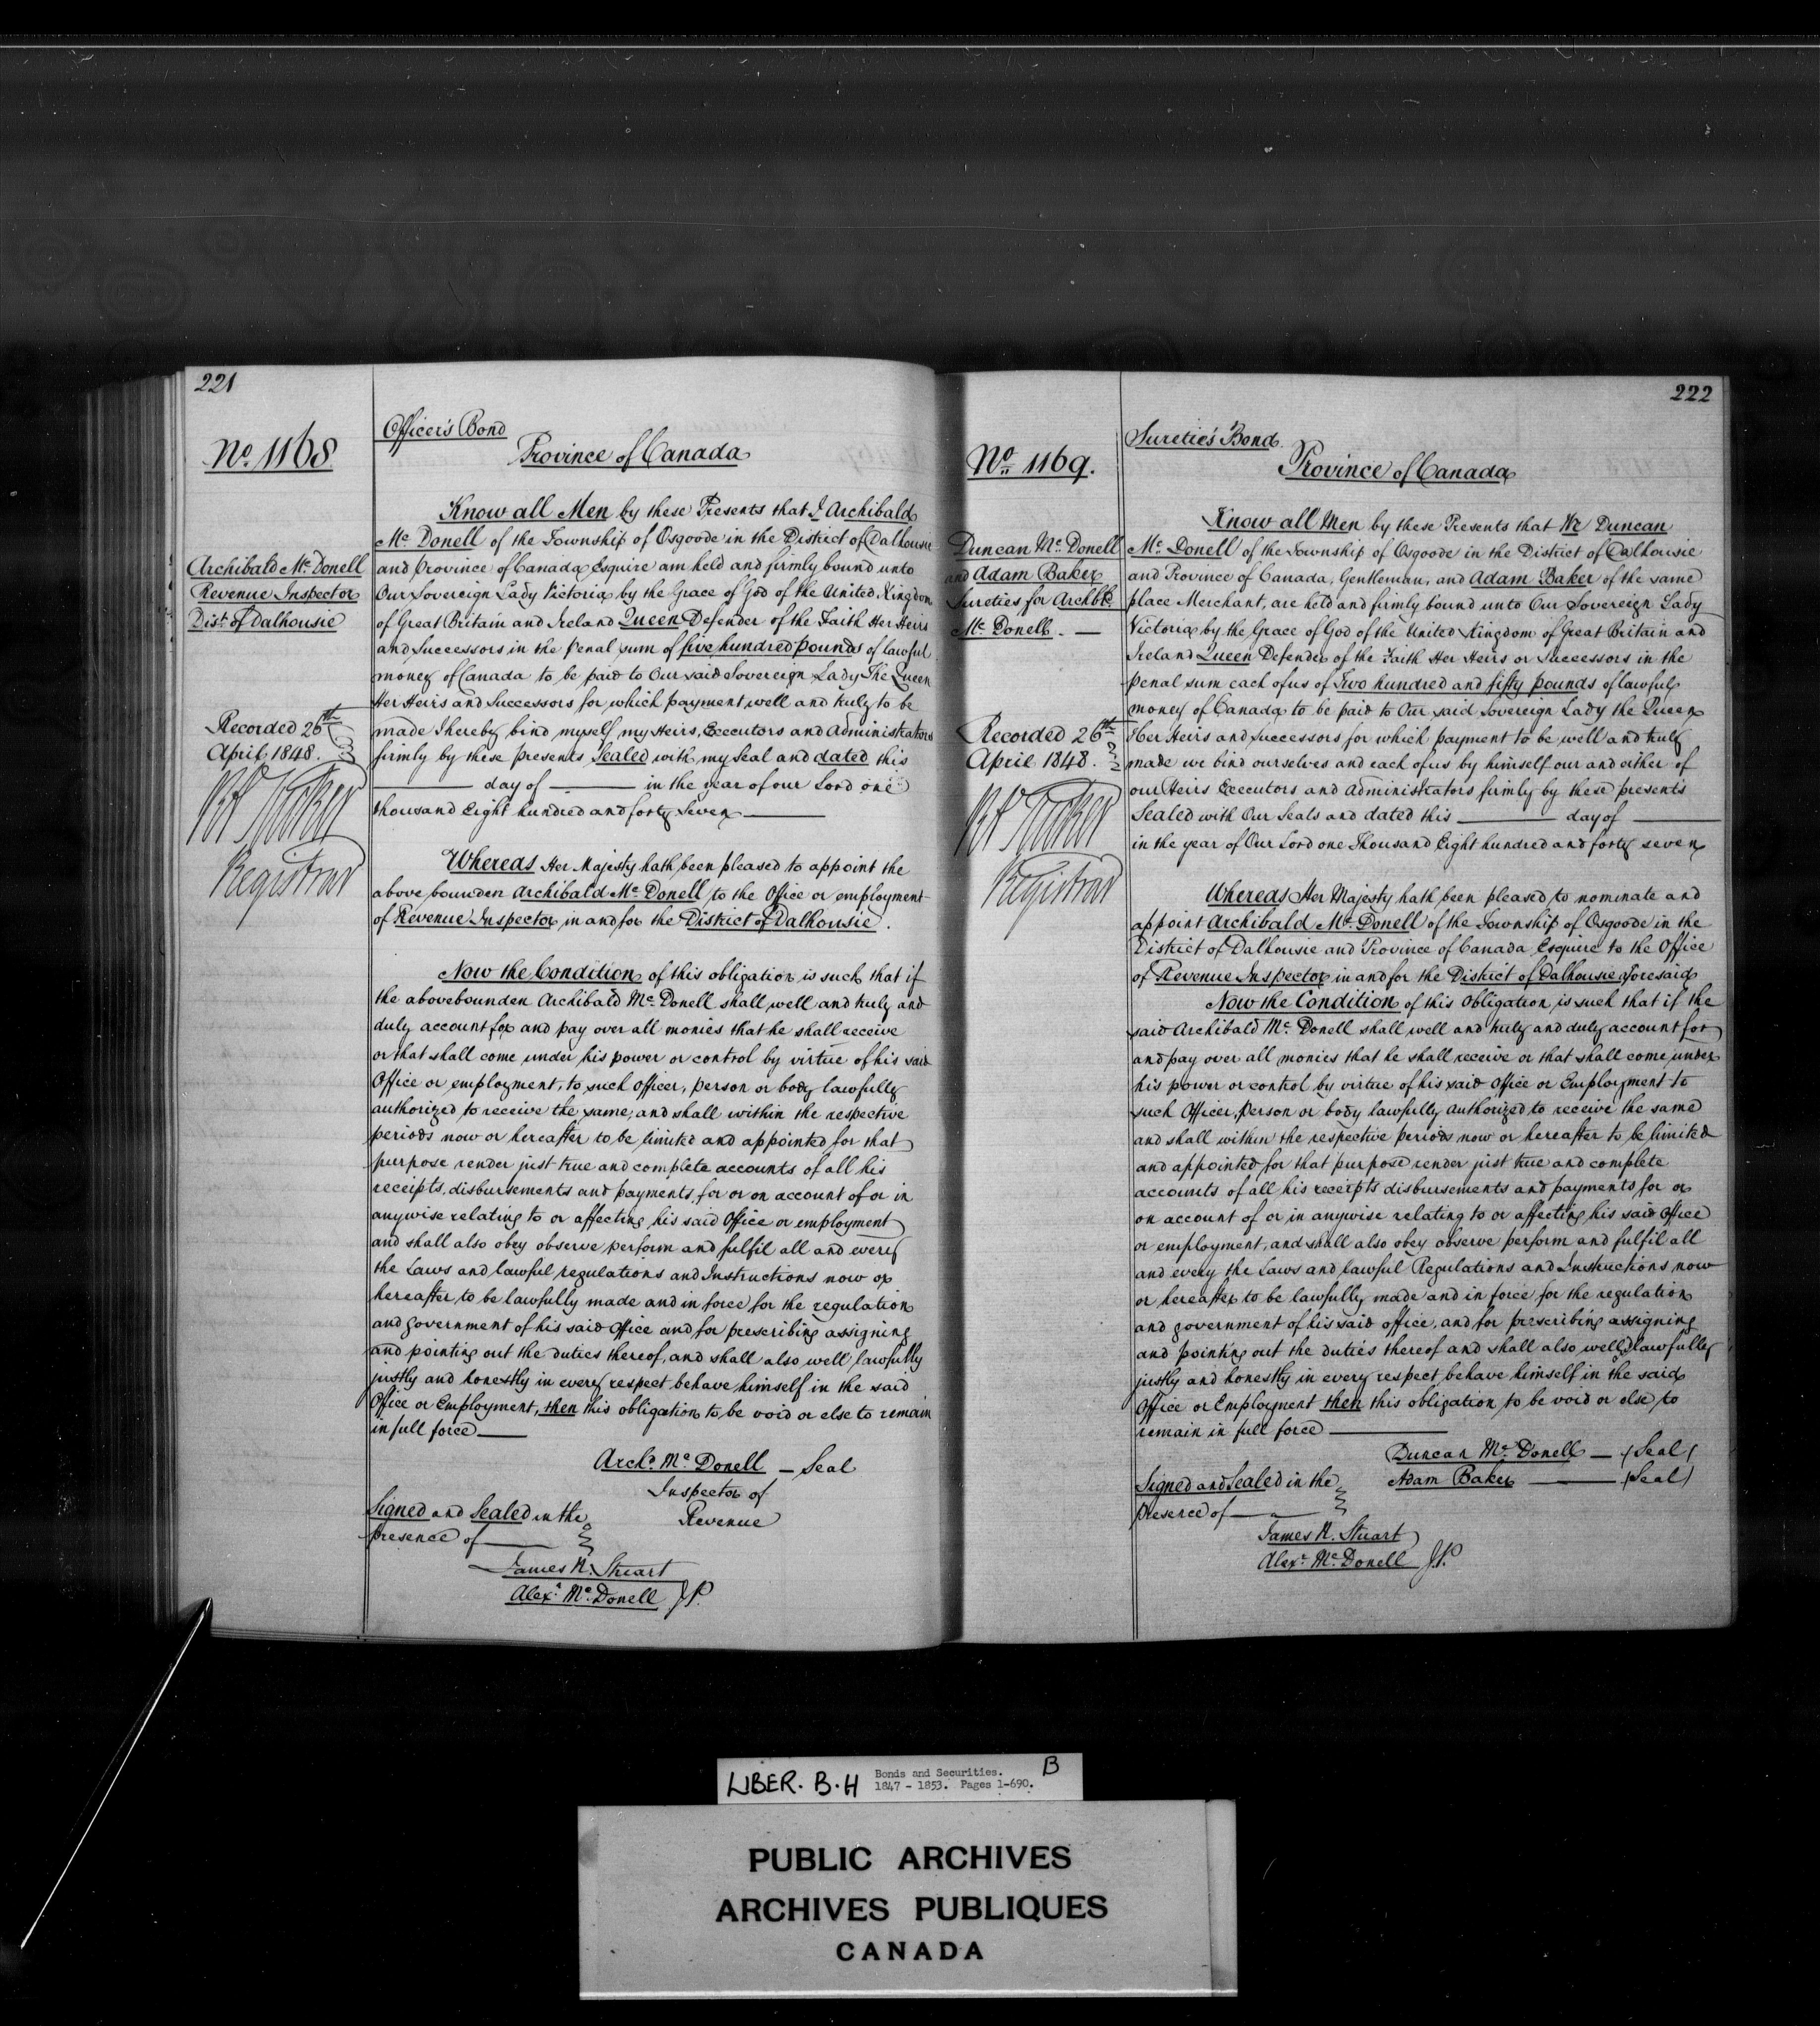 221
Nº. 1168
Archibald Mc. Donell
Revenue Inspector
Dist. of Dalhousie
Recorded 26th
April 1848.
Registrar
Officer's Bond
Province of Canada
Know all Men by these Presents that I Archibald
Mc. Donell of the Township of Osgoode in the District of Dalhousie
and Province of Canada Esquire am held and firmly bound unto
Our Sovereign Lady Victoria by the Grace of God of the United Kingdom
of Great Britain and Ireland Queen Defender of the Faith Her Heirs
and Successors in the Penal sum of five hundred pounds of lawful
money of Canada to be paid to Our said Sovereign Lady The Queen
Her Heirs and Successors for which payment well and truly to be
made I hereby bind myself my Heirs, Executors and Administrators
firmly by these presents Sealed with my Seal and dated this
day of in the year of our Lord one
thousand Eight hundred and forty Seven
Whereas Her Majesty hath been pleased to appoint the
above bounden Archibald Mc. Donell to the Office or employment
of Revenue Inspector in and for the District of Dalhousie.
Now the Condition of this obligation is such that if
the abovebounden Archibald Mc. Donell shall well and truly and
duly account for and pay over all monies that he shall receive
or that shall come under his power or control by virtue of his said
Office or employment, to such Officer, person or body lawfully
authorized to receive the same, and shall within the respective
periods now or hereafter to be limited and appointed for that
purpose render just true and complete accounts of all his
receipts, disbursements and payments, for or on account of or in
anywise relating to or affecting his said Office or employment
and shall also obey observe perform and fulfil all and every
the Laws and lawful regulations and Instructions now or
hereafter to be lawfully made and in force for the regulation
and government of his said Office and for prescribing assigning
and pointing out the duties thereof, and shall also well lawfully
justly and honestly in every respect behave himself in the said
Office or Employment, then this obligation to be void or else to remain
in full force
Archd. Mc. Donell — Seal
Inspector of
Revenue
Signed and Sealed in the
presence of
James N. Stuart
Alexr. Mc. Donell JP.
222
No. 1169.
Duncan Mc. Donell
and Adam Baker
Sureties for Archbd.
Mc. Donell. —
Recorded 26th
April 1848.
Registrar
Suretie's Bond.
Province of Canada
Know all Men by these Presents that We Duncan
Mc. Donell of the Township of Osgoode in the District of Dalhousie
and Province of Canada, Gentleman, and Adam Baker of the same
place Merchant, are held and firmly bound unto Our Sovereign Lady
Victoria by the Grace of God of the United Kingdom of Great Britain and
Ireland Queen Defender of the Faith Her Heirs or Successors in the
Penal sum each of us of Two hundred and fifty pounds of lawful
money of Canada to be paid to Our said Sovereign Lady the Queen
Her Heirs and Successors for which payment to be well and truly
made we bind ourselves and each of us by himself our and either of
our Heirs Executors and Administrators firmly by these presents
Sealed with Our Seals and dated this day of
in the year of Our Lord one Thousand Eight hundred and forty seven
Whereas Her Majesty hath been pleased to nominate and
appoint Archibald Mc. Donell of the Township of Osgoode in the
District of Dalhousie and Province of Canada Esquire to the Office
of Revenue Inspector in and for the District of Dalhousie aforesaid
Now the Condition of this Obligation is such that if the
said Archibald Mc. Donell shall well and truly and duly account for
and pay over all monies that he shall receive or that shall come under
his power or control by virtue of his said Office or Employment to
such Officer, Person or body lawfully authorized to receive the same
and shall within the respective periods now or hereafter to be limited
and appointed for that purpose render just true and complete
accounts of all his receipts disbursements and payments for or
on account of or in anywise relating to or affecting his said Office
or employment, and shall also obey observe perform and fulfil all
and every the Laws and lawful Regulations and Instructions now
or hereafter to be lawfully made and in force for the regulation
and government of his said office, and for prescribing assigning
and pointing out the duties thereof and shall also well, lawfully
justly and honestly in every respect behave himself in the said
Office or Employment then this obligation to be void or else to
remain in full force
Duncan Mc. Donell — (Seal)
Adam Baker — (Seal)
Signed and Sealed in the
presence of
James N. Stuart
Alexr. Mc. Donell JP.
LIBER. B.H Bonds and Securities. B
1847 - 1853. Pages 1-690.
PUBLIC ARCHIVES
ARCHIVES PUBLIQUES
CANADA